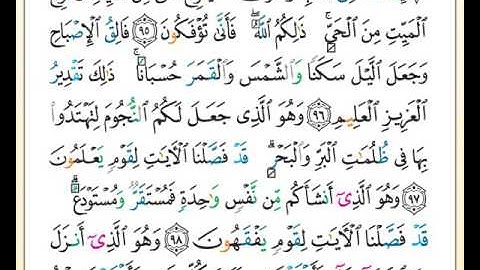 ٱلْمَيِّتِ مِنَ ٱلْحَىِّ ۚ ذَٰلِكُمُ ٱللَّهُ ۖ فَأَنَّىٰ تُؤْفَكُونَ ٩٥ فَالِقُ ٱلْإِصْبَاحِ
وَجَعَلَ ٱلَّيْلَ سَكَنًا وَٱلشَّمْسَ وَٱلْقَمَرَ حُسْبَانًا ۚ ذَٰلِكَ تَقْدِيرُ
ٱلْعَزِيزِ ٱلْعَلِيمِ ٩٦ وَهُوَ ٱلَّذِى جَعَلَ لَكُمُ ٱلنُّجُومَ لِتَهْتَدُوا۟
بِهَا فِى ظُلُمَٰتِ ٱلْبَرِّ وَٱلْبَحْرِ ۗ قَدْ فَصَّلْنَا ٱلْءَايَٰتِ لِقَوْمٍ يَعْلَمُونَ
٩٧ وَهُوَ ٱلَّذِىٓ أَنشَأَكُم مِّن نَّفْسٍ وَٰحِدَةٍ فَمُسْتَقَرٌّ وَمُسْتَوْدَعٌ ۗ
قَدْ فَصَّلْنَا ٱلْءَايَٰتِ لِقَوْمٍ يَفْقَهُونَ ٩٨ وَهُوَ ٱلَّذِىٓ أَنزَلَ